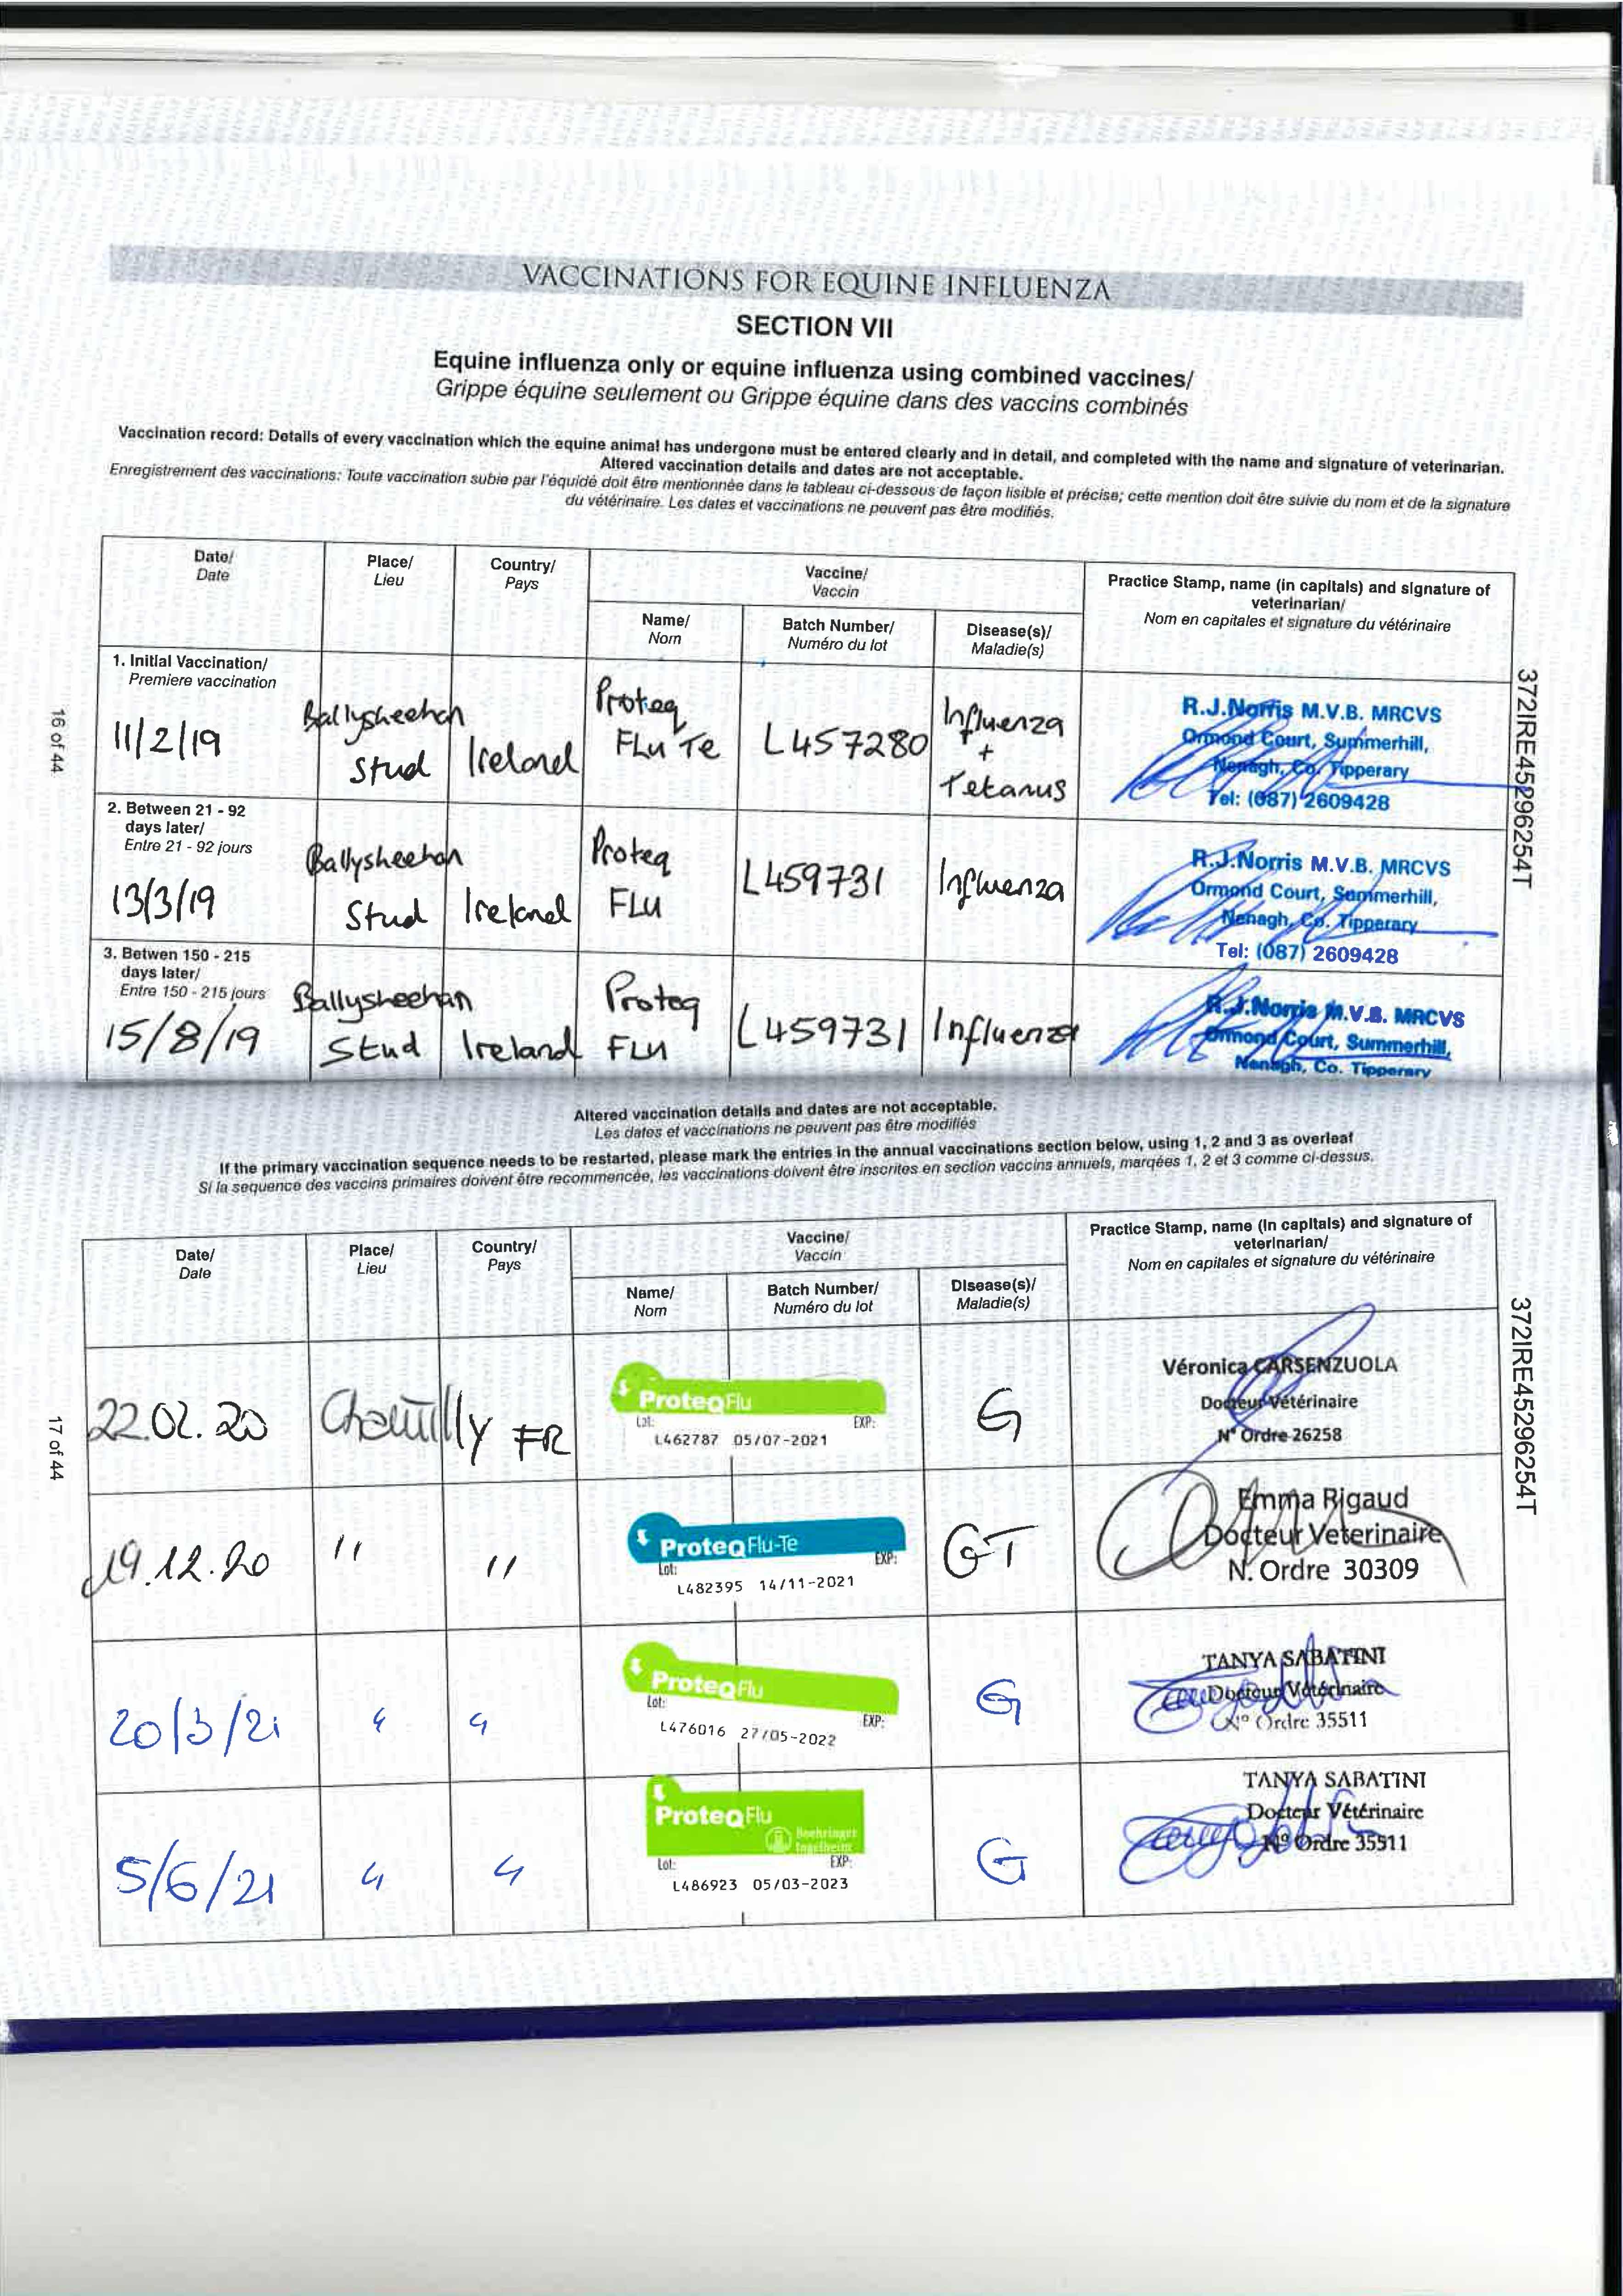 VACCINATIONS FOR EQUINE INFLUENZA
SECTION VII
Equine influenza only or equine influenza using combined vaccines/
Grippe équine seulement ou Grippe équine dans des vaccins combinés
Vaccination record: Details of every vaccination which the equine animal has undergone must be entered clearly and in detail, and completed with the name and signature of veterinarian.
Altered vaccination details and dates are not acceptable.
Enregistrement des vaccinations: Toute vaccination subie par l'équidé doit être mentionnée dans le tableau ci-dessous de façon lisible et précise; cette mention doit être suivie du nom et de la signature
du vétérinaire. Les dates et vaccinations ne peuvent pas être modifiés.
Date/
Date
Place/
Lieu
Country/
Pays
Vaccine/
Vaccin
Name/
Nom
Batch Number/
Numéro du lot
Disease(s)/
Maladie(s)
Practice Stamp, name (in capitals) and signature of
veterinarian/
Nom en capitales et signature du vétérinaire
1. Initial Vaccination/
Premiere vaccination
11/2/19
Ballysheehan
Stud
Ireland
Proteq
FLu Te
L457280
Influenza
+
Tetanus
R.J.Norris M.V.B. MRCVS
Ormond Court, Summerhill,
Nenagh, Co. Tipperary
Tel: (087) 2609428
2. Between 21 - 92
days later/
Entre 21 - 92 jours
13/3/19
Ballysheehan
Stud
Ireland
Proteq
FLu
L459731
Influenza
R.J.Norris M.V.B. MRCVS
Ormond Court, Summerhill,
Nenagh, Co. Tipperary
Tel: (087) 2609428
3. Betwen 150 - 215
days later/
Entre 150 - 215 jours
15/8/19
Ballysheehan
Stud
Ireland
Proteq
FLu
L459731
Influenza
R.J.Norris M.V.B. MRCVS
Ormond Court, Summerhill,
Nenagh, Co. Tipperary
16 of 44
372IRE45296254T
Altered vaccination details and dates are not acceptable.
Les dates et vaccinations ne peuvent pas être modifiés
If the primary vaccination sequence needs to be restarted, please mark the entries in the annual vaccinations section below, using 1, 2 and 3 as overleaf
Si la sequence des vaccins primaires doivent être recommencée, les vaccinations doivent être inscrites en section vaccins annuels, marqées 1, 2 et 3 comme ci-dessus.
Date/
Date
Place/
Lieu
Country/
Pays
Vaccine/
Vaccin
Name/
Nom
Batch Number/
Numéro du lot
Disease(s)/
Maladie(s)
Practice Stamp, name (in capitals) and signature of
veterinarian/
Nom en capitales et signature du vétérinaire
22.02.20
Chantilly
FR
ProteqFlu
Lot: EXP:
L462787 05/07-2021
G
Véronica CARSENZUOLA
Docteur Vétérinaire
N° Ordre 26258
19.12.20
"
"
ProteqFlu-Te
Lot: EXP:
L482395 14/11-2021
GT
Emma Rigaud
Docteur Veterinaire
N. Ordre 30309
20/3/21
"
"
ProteqFlu
Lot: EXP:
L476016 27/05-2022
G
TANYA SABATINI
Docteur Vétérinaire
N° Ordre 35511
5/6/21
"
"
ProteqFlu
Boehringer
Ingelheim
Lot: EXP:
L486923 05/03-2023
G
TANYA SABATINI
Docteur Vétérinaire
N° Ordre 35511
17 of 44
372IRE45296254T